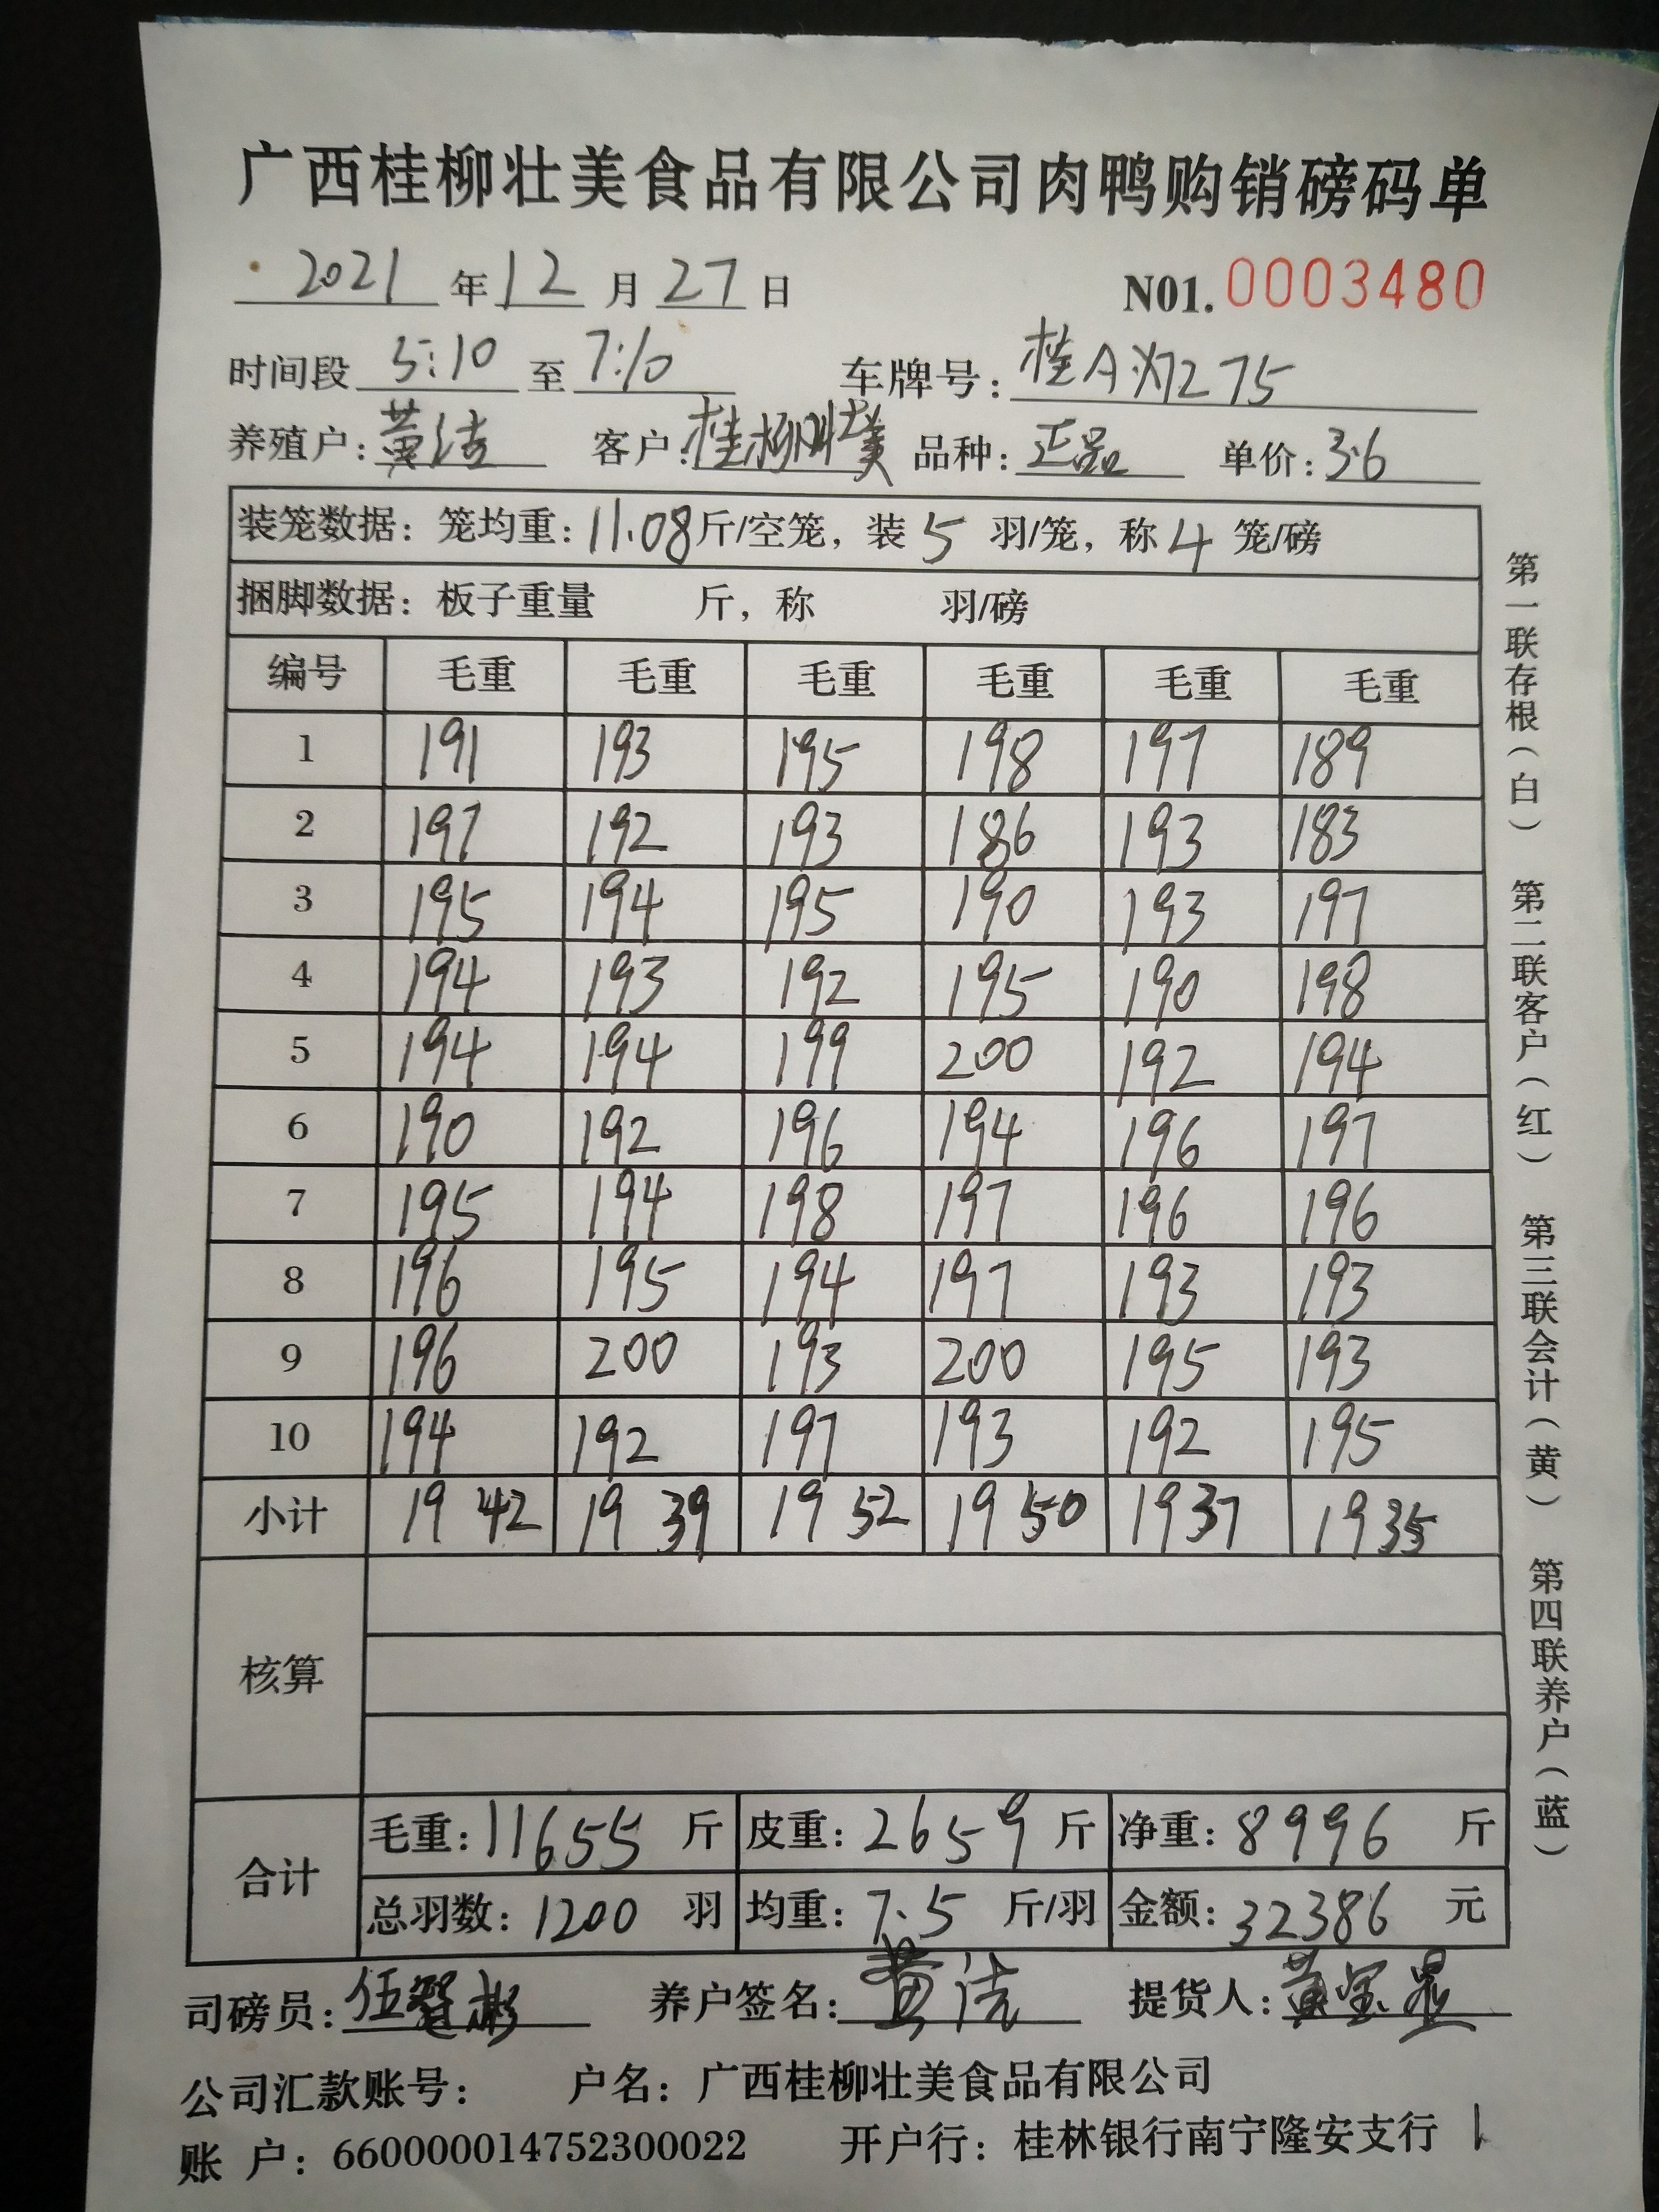 广西桂柳壮美食品有限公司肉鸭购销磅码单
2021 年 12 月 27 日 N01. 0003480
时间段 5:10 至 7:10 车牌号: 桂A 275
养殖户: 黄洁 客户: 桂柳壮美 品种: 正品 单价: 3.6
装笼数据: 笼均重: 11.08 斤/空笼, 装 5 羽/笼, 称 4 笼/磅
捆脚数据: 板子重量 斤, 称 羽/磅
编号 毛重 毛重 毛重 毛重 毛重 毛重
1 191 193 195 198 197 189
2 197 192 193 186 193 183
3 195 194 195 190 193 197
4 194 193 192 195 190 198
5 194 194 199 200 192 194
6 190 192 196 194 196 197
7 195 194 198 197 196 196
8 196 195 194 197 193 193
9 196 200 193 200 195 193
10 194 192 197 193 192 195
小计 1942 1939 1952 1950 1937 1935
核算
合计
毛重: 11655 斤 皮重: 2659 斤 净重: 8996 斤
总羽数: 1200 羽 均重: 7.5 斤/羽 金额: 32386 元
司磅员: 伍智彬 养户签名: 黄洁 提货人: 黄
公司汇款账号: 户名: 广西桂柳壮美食品有限公司
账 户: 660000014752300022 开户行: 桂林银行南宁隆安支行 1
第一联存根(白) 第二联客户(红) 第三联会计(黄) 第四联养户(蓝)